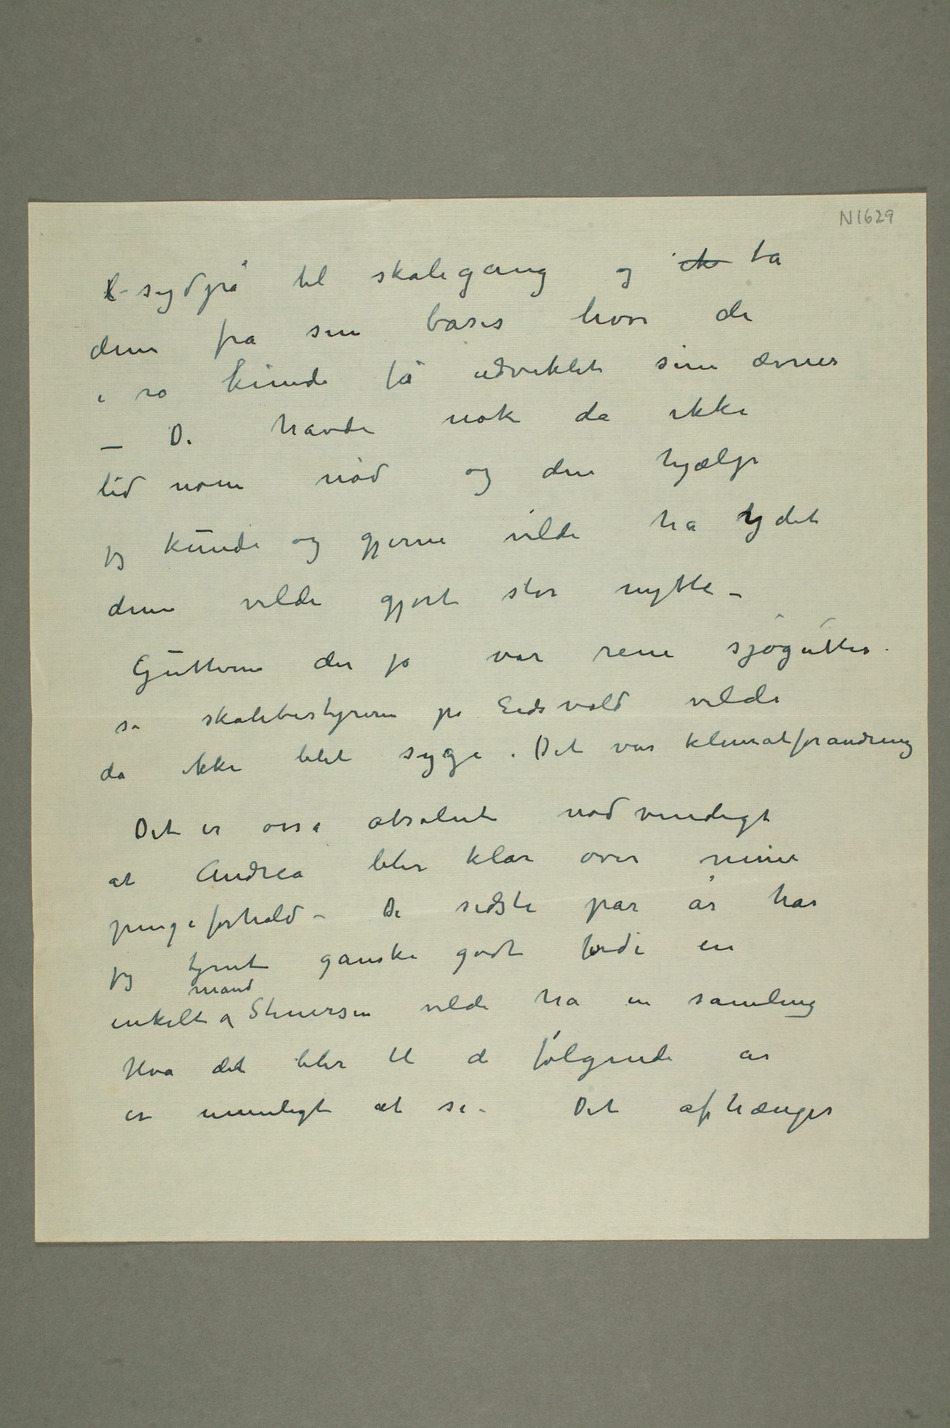 N1629
sydpå til skolegang og ik ta
dem fra sin basis hvor de
i ro kunde få udviklet sine ævner
– De havde nok da ikke
lid noen nød og den hjælp
jeg kunde og gjerne vilde ha ydet
dem vilde gjort stor nytte –
Gutterne der jo var rene sjøgutter
sa skolebestyreren på Eidsvold vilde
da ikke blit syge. Det var klimatforandring
Det er osså absolut nødvendigt
at Andrea blir klar over mine
pengeforhold – De sidste par år har
jeg tjent ganske godt fordi en
mand
enkelt Stenersen vilde ha en samling
Hva det blir til de følgende år
er umuligt at se – Det afhænger